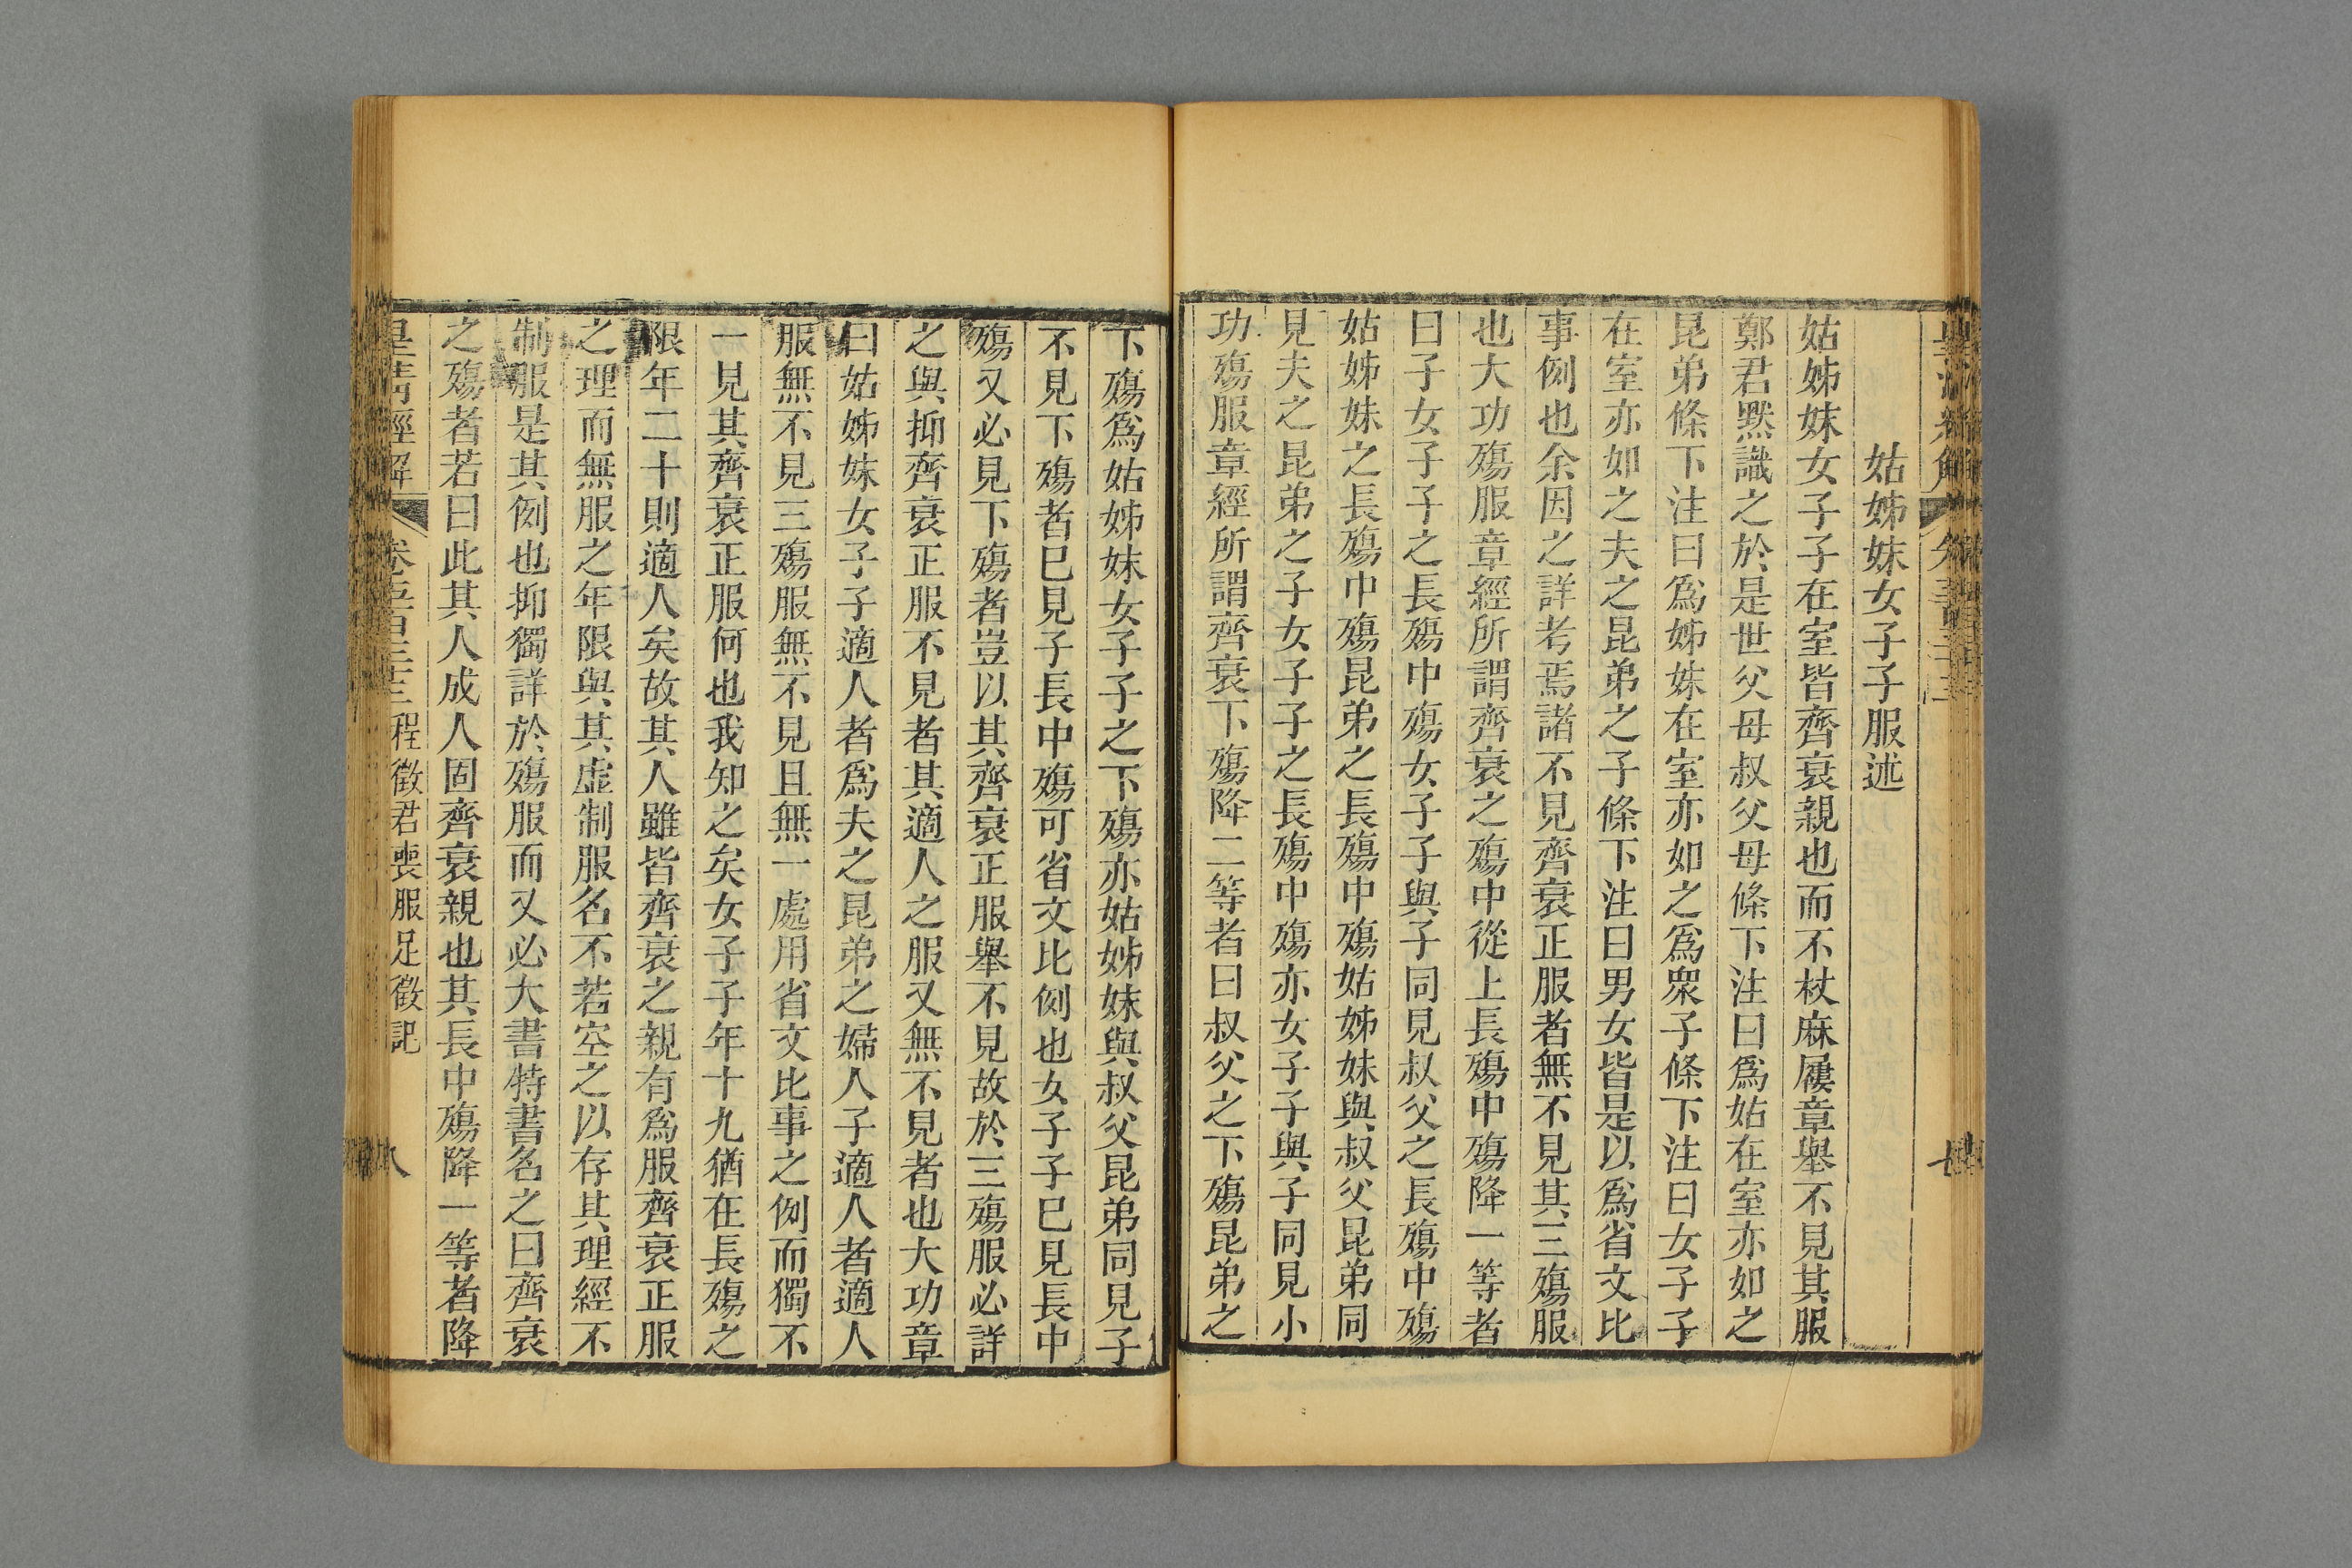 姑姊妹女子子服述
姑姊妹女子子在室皆齊衰親也而不杖麻屨章舉不見其服
鄭君黙識之於是世父母叔父母條下注曰爲姑在室亦如之
昆弟條下注曰爲姊妹在室亦如之爲衆子條下注曰女子子
在室亦如之夫之昆弟之子條下注曰男女皆是以爲省文比
事例也余因之詳考焉諸不見齊衰正服者無不見其三殤服
也大功殤服章經所謂齊衰之殤中從上長殤中殤降一等者
曰子女子子之長殤中殤女子子與子同見叔父之長殤中殤
姑姊妹之長殤中殤昆弟之長殤中殤姑姊妹與叔父昆弟同
見夫之昆弟之子女子子之長殤中殤亦女子子與子同見小
功殤服章經所謂齊衰下殤降二等者曰叔父之下殤昆弟之
下殤爲姑姊妹女子子之下殤亦姑姊妹與叔父昆弟同見子
不見下殤者巳見子長中殤可省文比例也女子子巳見長中
殤又必見下殤者豈以其齊衰正服舉不見故於三殤服必詳
之與抑齊衰正服不見者其適人之服又無不見者也大功章
曰姑姊妹女子子適人者爲夫之昆弟之婦人子適人者適人
服無不見三殤服無不見且無一處用省文比事之例而獨不
一見其齊衰正服何也我知之矣女子子年十九猶在長殤之
限年二十則適人矣故其人雖皆齊衰之親有爲服齊衰正服
之理而無服之年限與其虛制服名不若空之以存其理經不
制服是其例也抑獨詳於殤服而又必大書特書名之曰齊衰
之殤者若曰此其人成人固齊衰親也其長中殤降一等者降
皇清經解 卷五百三十三 程徵君喪服足徵記 八